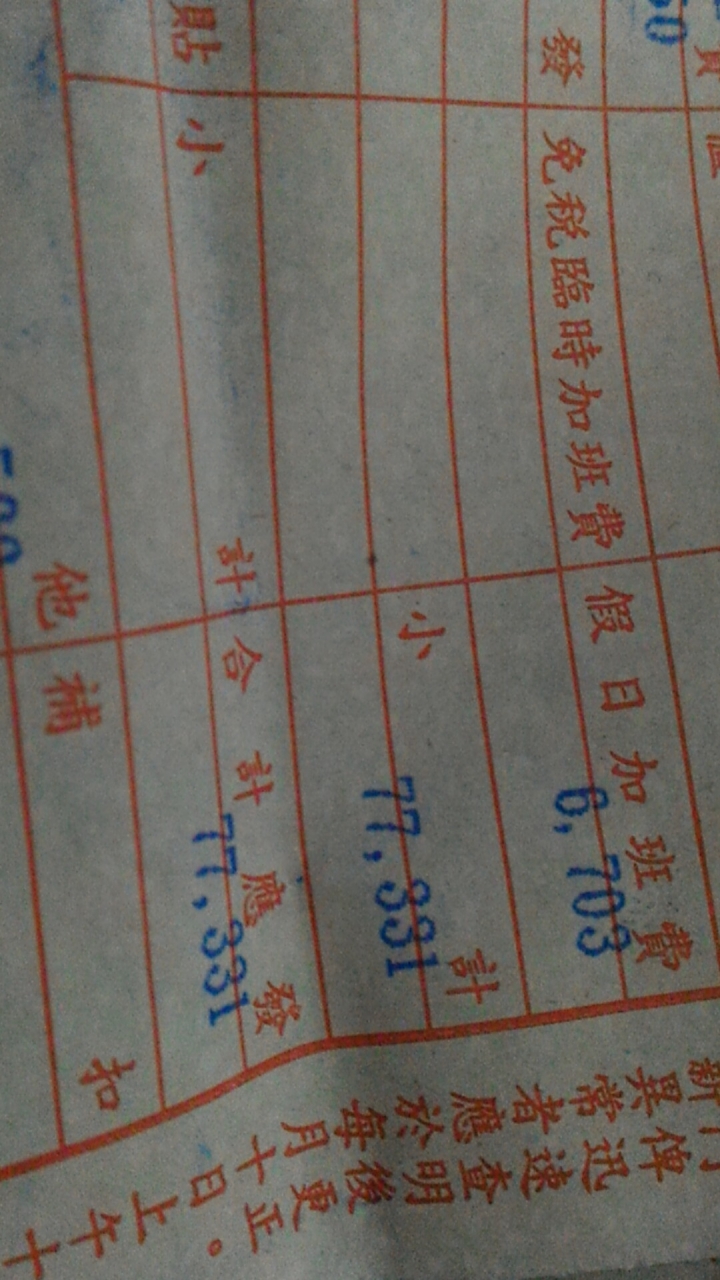 貼
發
免稅臨時加班費
假日加班費
6,703
小計
小計
77,331
合計應發
77,331
他
補扣
俾迅速查明後更正。
異常者應於每月十日上午十